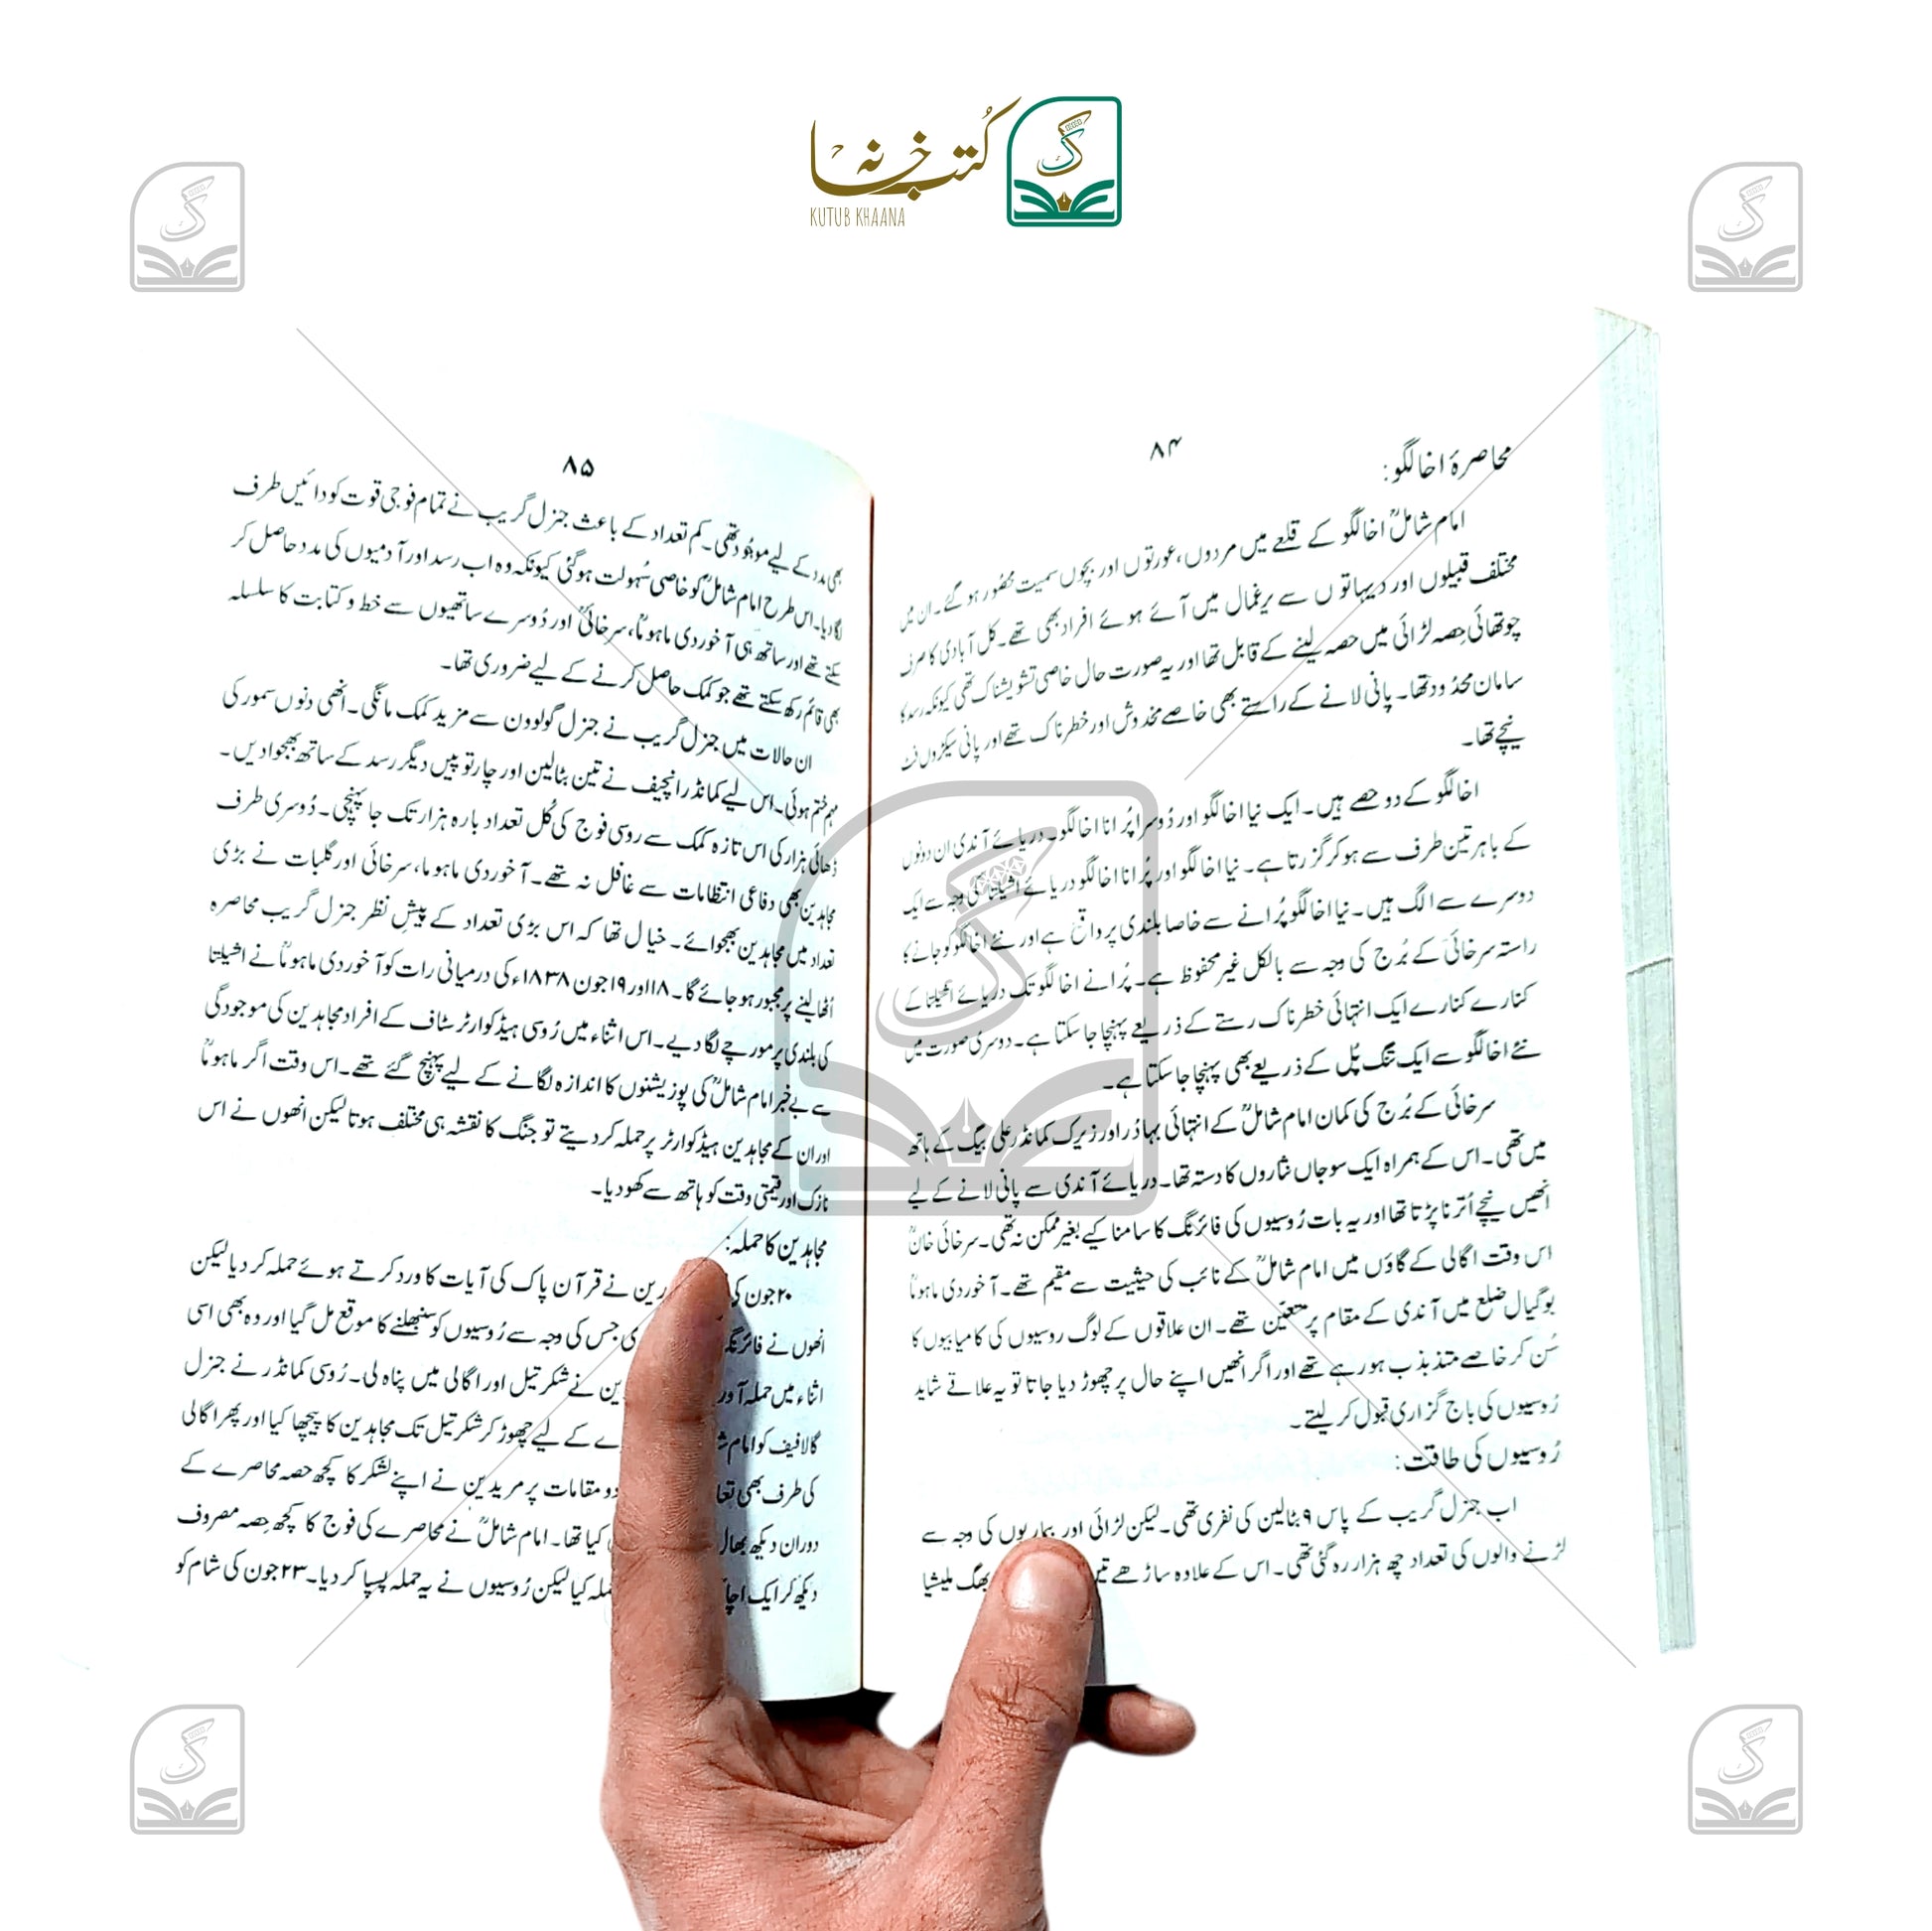 کتب خانہ
KUTUB KHAANA
۸۴
محاصرۂ اخالگو:
امام شاملؒ اخالگو کے قلعے میں مردوں، عورتوں اور بچوں سمیت محصُور ہو گئے۔ ان میں
مختلف قبیلوں اور دیہاتوں سے یرغمال میں آئے ہوئے افراد بھی تھے۔ کل آبادی کا صرف
چوتھائی حِصہ لڑائی میں حصہ لینے کے قابل تھا اور یہ صورت حال خاصی تشویشناک تھی کیونکہ رسد کا
سامان محدُود تھا۔ پانی لانے کے راستے بھی خاصے مخدوش اور خطرناک تھے اور پانی سیکڑوں فٹ
نیچے تھا۔
اخالگو کے دو حصے ہیں۔ ایک نیا اخالگو اور دُوسرا پُرانا اخالگو۔ دریائے آندی ان دونوں
کے باہر تین طرف سے ہو کر گزرتا ہے۔ نیا اخالگو اور پُرانا اخالگو دریائے اشیلتا کی وجہ سے ایک
دوسرے سے الگ ہیں۔ نیا اخالگو پُرانے سے خاصا بلندی پر واقع ہے اور نئے اخالگو کو جانے کا
راستہ سرخائی کے بُرج کی وجہ سے بالکل غیر محفوظ ہے۔ پُرانے اخالگو تک دریائے اشیلتا کے
کنارے کنارے ایک انتہائی خطرناک رستے کے ذریعے پہنچا جا سکتا ہے۔ دوسری صورت میں
نئے اخالگو سے ایک تنگ پُل کے ذریعے بھی پہنچا جا سکتا ہے۔
سرخائی کے بُرج کی کمان امام شاملؒ کے انتہائی بہادُر اور زیرک کمانڈر علی بیگ کے ہاتھ
میں تھی۔ اس کے ہمراہ ایک سو جاں نثاروں کا دستہ تھا۔ دریائے آندی سے پانی لانے کے لیے
انھیں نیچے اُترنا پڑتا تھا اور یہ بات رُوسیوں کی فائرنگ کا سامنا کیے بغیر ممکن نہ تھی۔ سرخائی خانؒ
اس وقت اگالی کے گاؤں میں امام شاملؒ کے نائب کی حیثیت سے مقیم تھے۔ آخوردی ماہوماؒ
بوگیال ضلع میں آندی کے مقام پر متعیّن تھے۔ ان علاقوں کے لوگ روسیوں کی کامیابیوں کا
سُن کر خاصے متذبذب ہو رہے تھے اور اگر انھیں اپنے حال پر چھوڑ دیا جاتا تو یہ علاقے شاید
رُوسیوں کی باج گزاری قبول کر لیتے۔
رُوسیوں کی طاقت:
اب جنرل گریب کے پاس ۹ بٹالین کی نفری تھی۔ لیکن لڑائی اور بیماریوں کی وجہ سے
لڑنے والوں کی تعداد چھ ہزار رہ گئی تھی۔ اس کے علاوہ ساڑھے ملیشیا
۸۵
بھی مدد کے لیے موجُود تھی۔ کم تعداد کے باعث جنرل گریب نے تمام فوجی قوت کو دائیں طرف
لگا دیا۔ اس طرح امام شاملؒ کو خاصی سُہولت ہو گئی کیونکہ وہ اب رسد اور آدمیوں کی مدد حاصل کر
سکتے تھے اور ساتھ ہی آخوردی ماہوماؒ، سرخائیؒ اور دُوسرے ساتھیوں سے خط و کتابت کا سلسلہ
بھی قائم رکھ سکتے تھے جو کمک حاصل کرنے کے لیے ضروری تھا۔
ان حالات میں جنرل گریب نے جنرل گولوون سے مزید کمک مانگی۔ انھی دنوں سمور کی
مہم ختم ہوئی۔ اس لیے کمانڈر انچیف نے تین بٹالین اور چار توپیں دیگر رسد کے ساتھ بھجوا دیں۔
ڈھائی ہزار کی اس تازہ کمک سے روسی فوج کی کُل تعداد بارہ ہزار تک جا پہنچی۔ دُوسری طرف
مجاہدین بھی دفاعی انتظامات سے غافل نہ تھے۔ آخوردی ماہوما، سرخائی اور گلبات نے بڑی
تعداد میں مجاہدین بھجوائے۔ خیال تھا کہ اس بڑی تعداد کے پیشِ نظر جنرل گریب محاصرہ
اُٹھا لینے پر مجبور ہو جائے گا۔ ۱۸ اور ۱۹ جون ۱۸۳۸ء کی درمیانی رات کو آخوردی ماہوماؒ نے اشیلتا
کی بلندی پر مورچے لگا دیے۔ اس اثناء میں رُوسی ہیڈکوارٹر سٹاف کے افراد مجاہدین کی موجودگی
سے بے خبر امام شاملؒ کی پوزیشنوں کا اندازہ لگانے کے لیے پہنچ گئے تھے۔ اس وقت اگر ماہوماؒ
اور ان کے مجاہدین ہیڈکوارٹر پر حملہ کر دیتے تو جنگ کا نقشہ ہی مختلف ہوتا لیکن انھوں نے اس
نازک اور قیمتی وقت کو ہاتھ سے کھو دیا۔
مجاہدین کا حملہ:
۲۰ جون کی نے قرآن پاک کی آیات کا ورد کرتے ہوئے حملہ کر دیا لیکن
انھوں نے جس کی وجہ سے رُوسیوں کو سنبھلنے کا موقع مل گیا اور وہ بھی اسی
اثناء میں حملہ آور نے شکرتیل اور اگالی میں پناہ لی۔ رُوسی کمانڈر نے جنرل
گالافیف کو امام کے لیے چھوڑ کر شکرتیل تک مجاہدین کا پیچھا کیا اور پھر اگالی
کی طرف بھی دو مقامات پر مریدین نے اپنے لشکر کا کچھ حصہ محاصرے کے
دوران دیکھ بھال کیا تھا۔ امام شاملؒ نے محاصرے کی فوج کا کچھ حِصہ مصروف
دیکھ کر ایک کیا لیکن رُوسیوں نے یہ حملہ پسپا کر دیا۔ ۲۳ جون کی شام کو